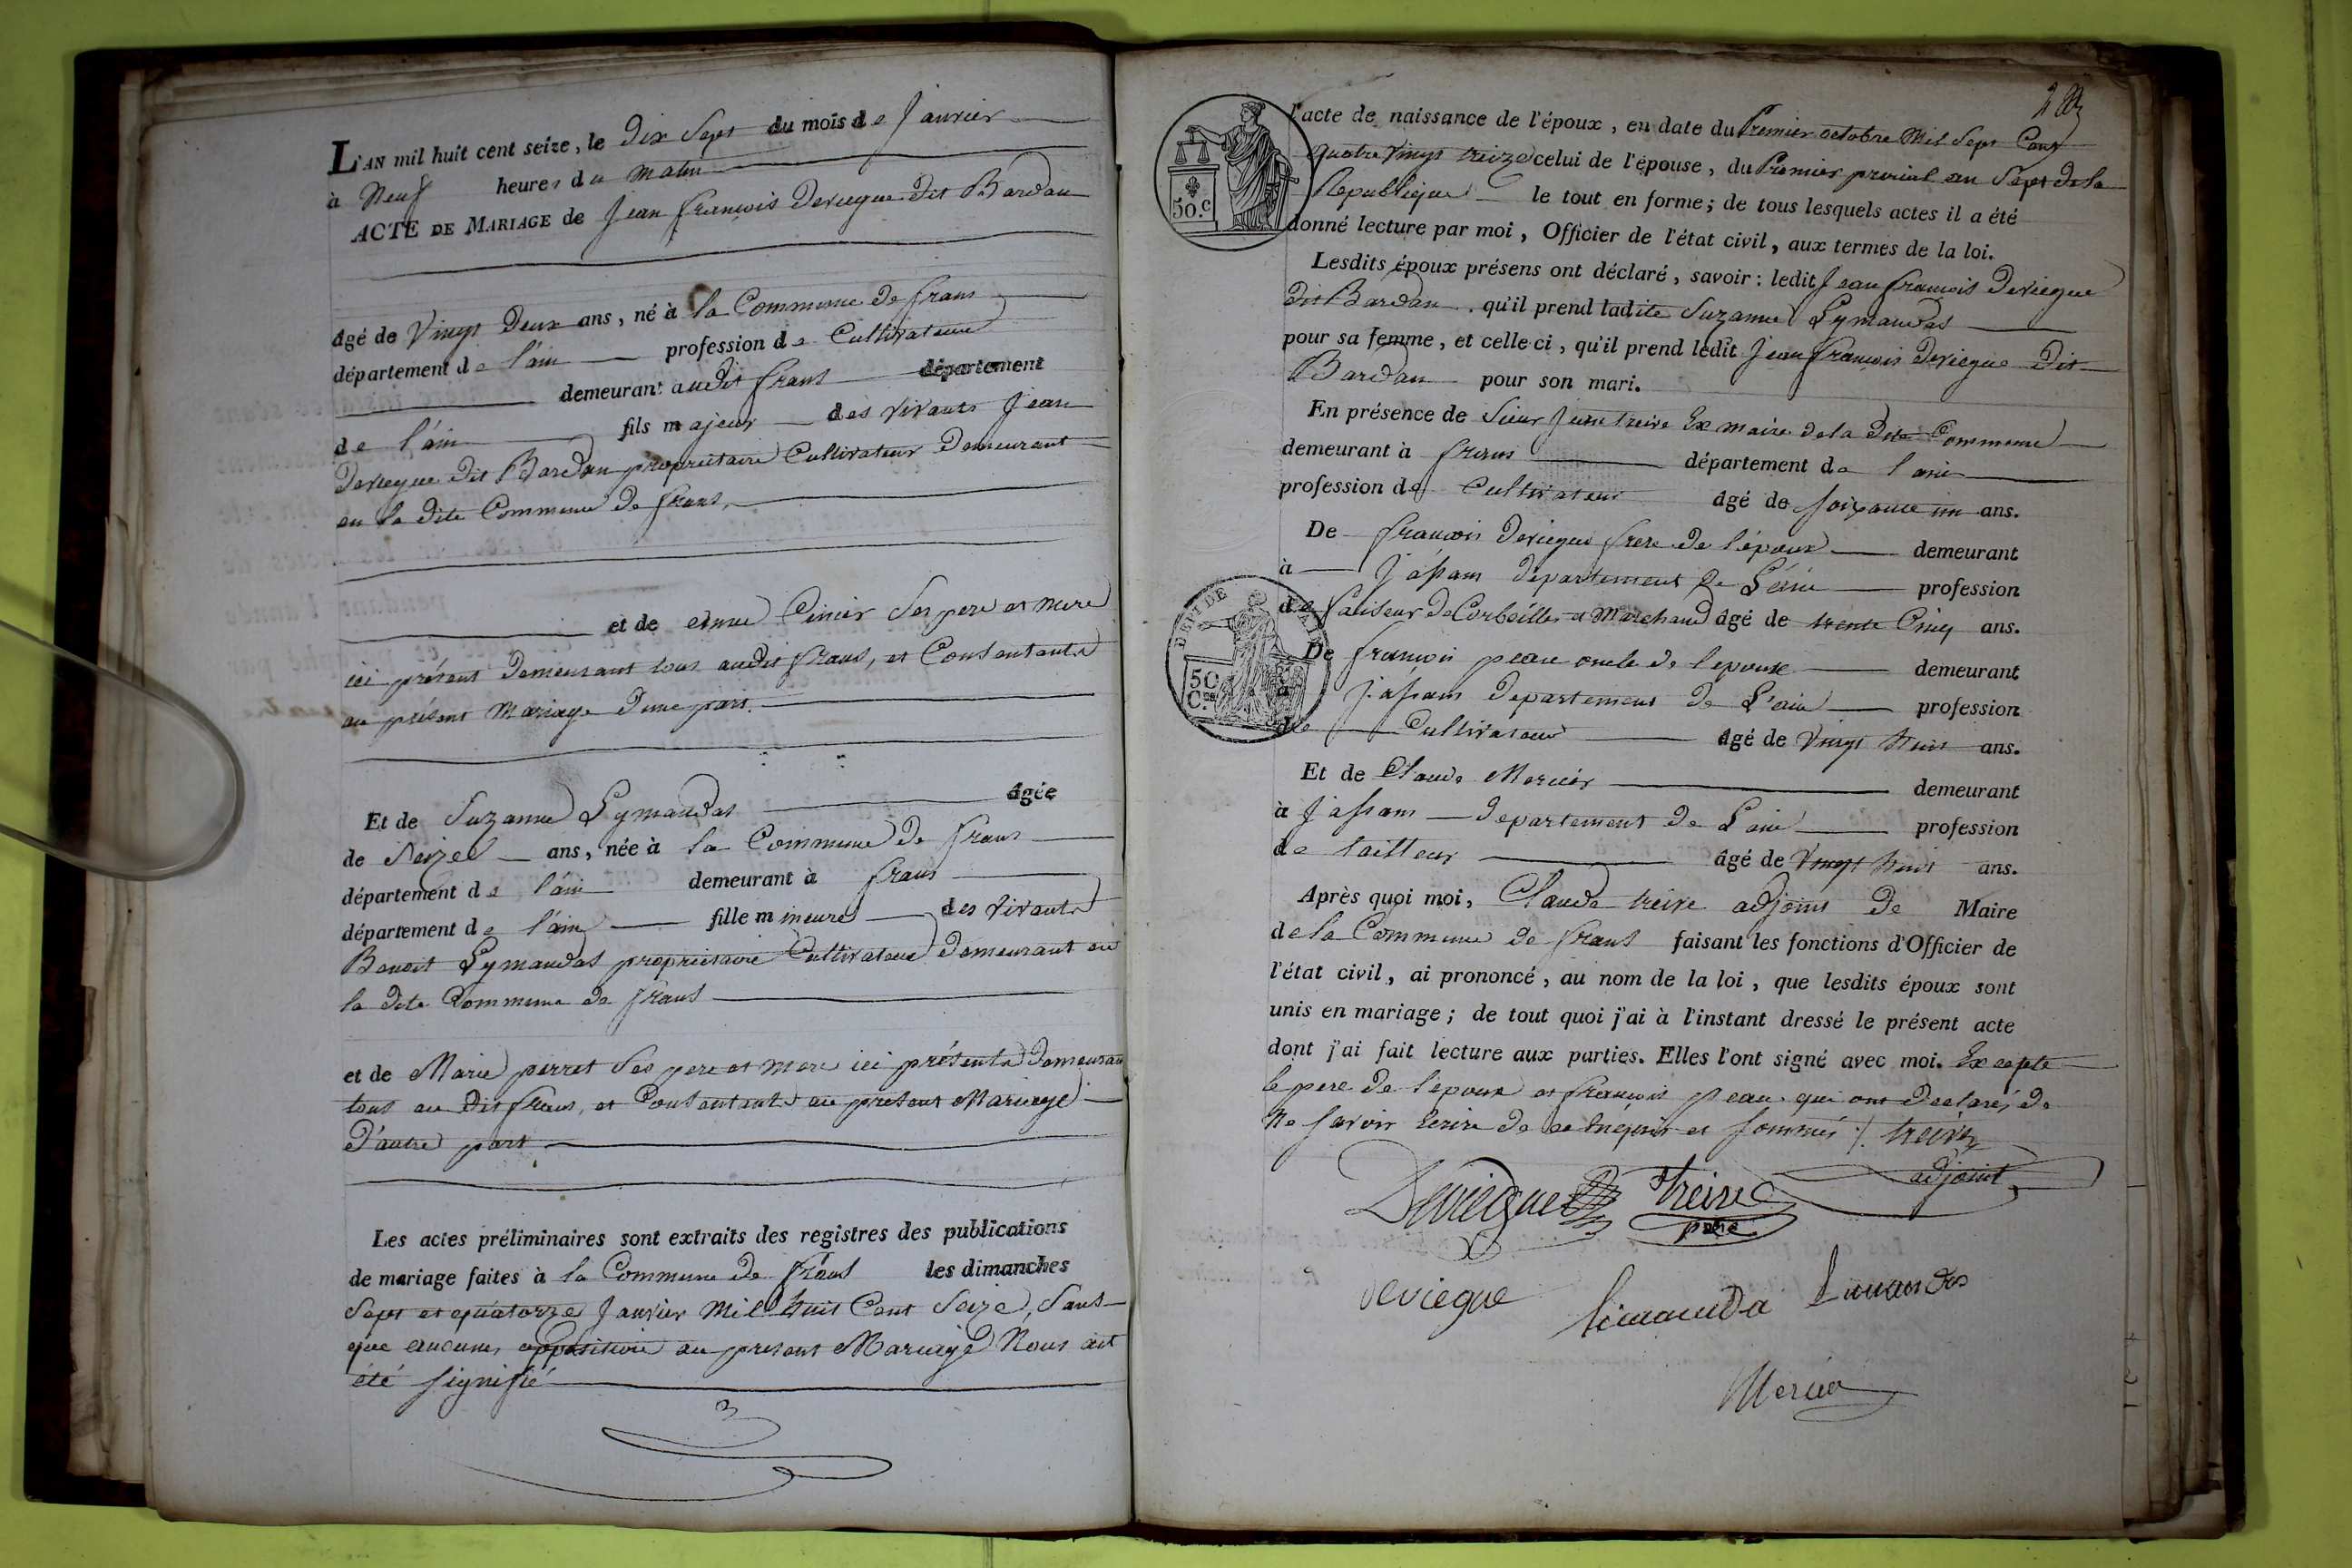 L'AN mil huit cent seize, le dix Sept du mois de Janvier
à Neuf heures du matin
ACTE DE MARIAGE de Jean françois Deviegue dit Bardan
âgé de Vingt Deux ans, né à la Commune de frans
département de l'ain profession de Cultivateur
demeurant audit frans département
de l'ain fils majeur des vivants Jean
Deviegue dit Bardan propriétaire Cultivateur Demeurant
en la dite Commune de frans,
et de Ses pere et mere
ici présent Demeurant tous audit frans, et Consentants
au présent Mariage d'une part.
Et de Suzanne Lymandas âgée
de Seize ans, née à la Commune de frans
département de l'ain demeurant à frans
département de l'ain fille mineure des vivants
Benoit Lymandas propriétaire Cultivateur Demeurant en
la dite Commune de frans
et de Marie perret Ses pere et mere ici présents Demeurant
tous au Dit frans, et Consentants au présent Mariage
D'autre part
Les actes préliminaires sont extraits des registres des publications
de mariage faites à la Commune de frans les dimanches
Sept et quatorze Janvier Mil huit Cent Seize, Sans
que aucune opposition au présent Mariage Nous ait
été signifié
2
l'acte de naissance de l'époux, en date du Premier octobre Mil Sept Cent
quatre Vingt treize celui de l'épouse, du Premier prairial an Sept de la
Republique le tout en forme; de tous lesquels actes il a été
donné lecture par moi, Officier de l'état civil, aux termes de la loi.
Lesdits époux présens ont déclaré, savoir: ledit Jean françois Deviegue
dit Bardan qu'il prend ladite Suzanne Lymandas
pour sa femme, et celle ci, qu'il prend ledit Jean françois Deviegue dit
Bardan pour son mari.
En présence de Sieur Jean treive Ex maire de la Dite Commune
demeurant à frans département de l'ain
profession de Cultivateur âgé de soixante un ans.
De françois Deviegue frere de l'époux demeurant
à Jassans département de L'ain profession
de faiseur de Corbeilles et Marchand âgé de trente Cinq ans.
De françois peau oncle de l'epouse demeurant
à Jassans departement de L'ain profession
de Cultivateur âgé de Vingt huit ans.
Et de Claude Mercier demeurant
à Jassans departement de L'ain profession
de tailleur âgé de Vingt huit ans.
Après quoi moi, Claude treive adjoint de Maire
de la Commune de frans faisant les fonctions d'Officier de
l'état civil, ai prononcé, au nom de la loi, que lesdits époux sont
unis en mariage; de tout quoi j'ai à l'instant dressé le présent acte
dont j'ai fait lecture aux parties. Elles l'ont signé avec moi. Excepte
le pere de l'epoux et françois peau qui ont declarés de
ne savoir écrire de ce enquis et sommés ./. treive
adjoint
50.C
DEP. DE
50 C.
Deviegue treive
pere
deviegue limanda Limandas
Mercier